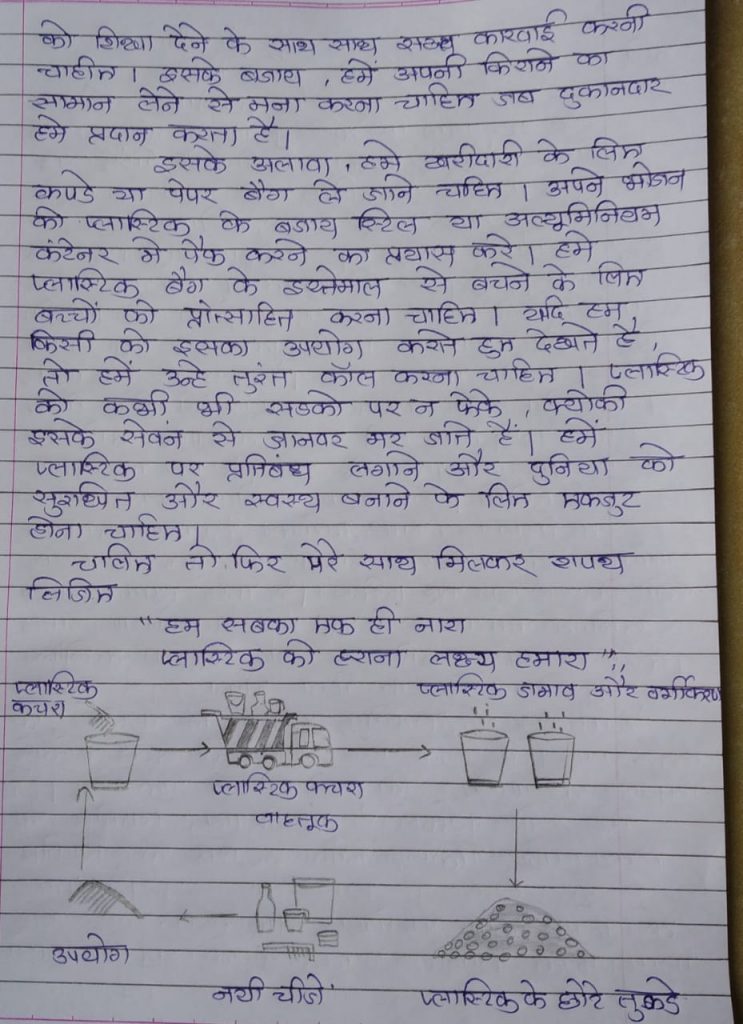 को शिक्षा देने के साथ साथ सख्य कारवाई करनी
चाहीए। इसके बजाय, हमें अपनी किराने का
सामान लेने से मना करना चाहिए जब दुकानदार
हमे प्रदान करता है।
इसके अलावा, हमे खरीदारी के लिए
कपडे या पेपर बैग ले जाने चहिए। अपने भोजन
को प्लास्टिक के बजाय स्टिल या अल्युमिनियम
कंटेनर मे पैक करने का प्रयास करे। हमे
प्लास्टिक बैग के इस्तेमाल से बचने के लिए
बच्चों को प्रोत्साहित करना चाहिए। यदि हम,
किसी को इसका उपयोग करते हुए देखते है,
तो हमें उन्हे तुरंत कॉल करना चाहिए। प्लास्टिक
को कभी भी सडको पर न फेके, क्योकी
इसके सेवन से जानवर मर जाते हैं। हमें
प्लास्टिक पर प्रतिबंध लगाने और दुनिया को
सुरक्षित और स्वस्थ बनाने के लिए एकजुट
होना चाहिए।
चलिए तो फिर मेरे साथ मिलकर शपथ
लिजिए
"हम सबका एक ही नारा
प्लास्टिक को हराना लक्ष्य हमारा",,
प्लास्टिक कचरा
प्लास्टिक जमाव और वर्गीकरण
प्लास्टिक कचरा
वाहतूक
उपयोग
नयी चीजे
प्लास्टिक के छोटे तुकडे